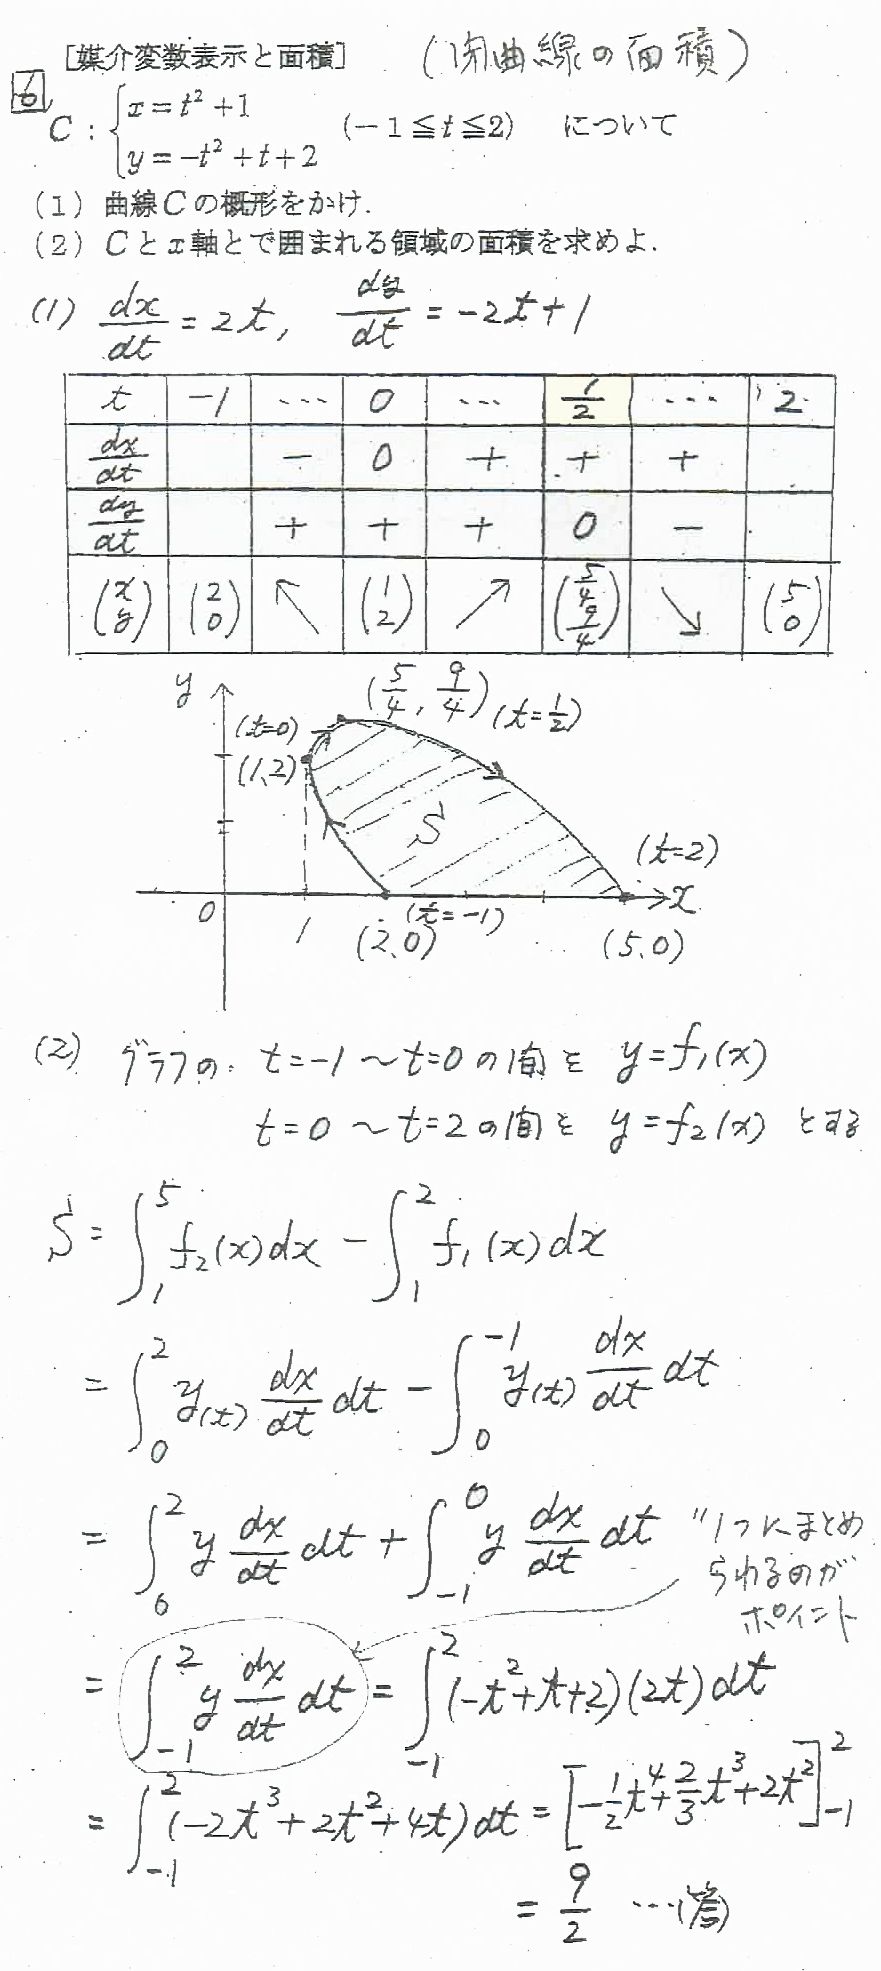 [媒介変数表示と面積] (閉曲線の面積)
6
C : { x = t² + 1
y = -t² + t + 2 (-1 ≦ t ≦ 2) について
(1) 曲線Cの概形をかけ.
(2) Cとx軸とで囲まれる領域の面積を求めよ.
(1) dx/dt = 2t, dy/dt = -2t + 1
t -1 … 0 … 1/2 … 2
dx/dt - 0 + + +
dy/dt + + + 0 -
(x y) (2 0) ↖ (1 2) ↗ (5/4 9/4) ↘ (5 0)
y (5/4, 9/4) (t=1/2)
(t=0)
(1,2)
S
(t=2)
0 (t=-1) x
1 (2,0) (5,0)
(2) グラフの t=-1 ～ t=0 の間を y=f₁(x)
t=0 ～ t=2 の間を y=f₂(x) とする
S = ∫₁⁵ f₂(x)dx - ∫₁² f₁(x)dx
= ∫₀² y(t) dx/dt dt - ∫₀⁻¹ y(t) dx/dt dt
= ∫₀² y dx/dt dt + ∫₋₁⁰ y dx/dt dt "1つにまとめ
られるのが
ポイント
= ∫₋₁² y dx/dt dt = ∫₋₁² (-t²+t+2)(2t)dt
= ∫₋₁² (-2t³+2t²+4t)dt = [-1/2 t⁴ + 2/3 t³ + 2t²]₋₁²
= 9/2 …(答)